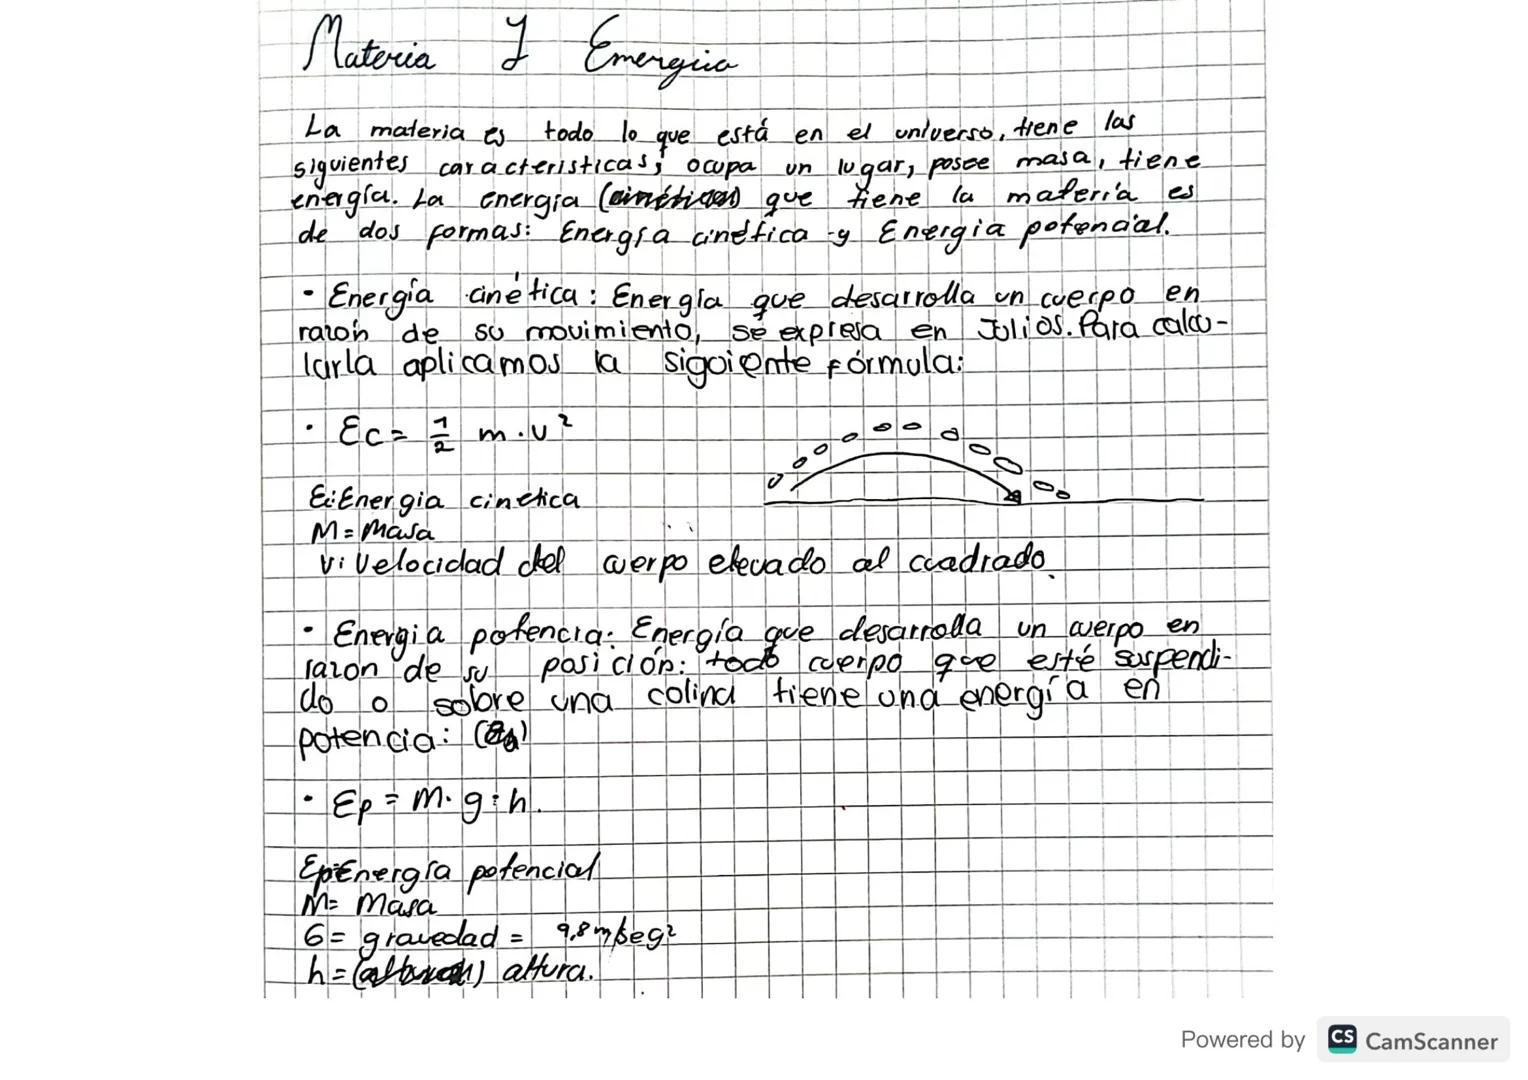 Materia Y Emergiia
La materia es todo lo que está en el universo, tiene las
siguientes caracteristicas; ocupa un lugar, posee masa, tiene
energía. La energía (cinética) que tiene la matería es
de dos formas: Energía cinética y Energia potencial.
· Energía cinética: Energía que desarrolla un cuerpo en
razón de su movimiento, se expresa en Julios. Para calcu-
larla aplicamos la siguiente fórmula:
· Ec = 1/2 m · v²
Ec: Energia cinetica
M = Masa
v: Velocidad del cuerpo elevado al cuadrado.
· Energia potencia: Energía que desarrolla un cuerpo en
razon de su posición: todo cuerpo que esté suspendi-
do o sobre una colina tiene una energía en
potencia:
· Ep = m · g · h.
Ep: Energía potencial
M = Masa
G = gravedad = 9,8 m/seg²
h = altura.
Powered by CS CamScanner